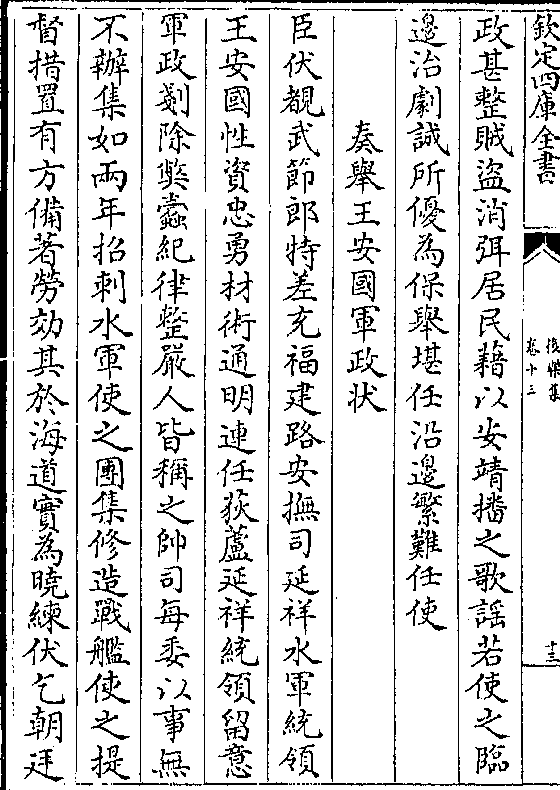 欽定四庫全書
後樂集
卷十三
十三
政甚整賊盜消弭居民藉以安靖播之歌謡若使之臨
邊治劇誠所優為保舉堪任沿邊繁難任使
奏舉王安國軍政狀
臣伏覩武節郎特差充福建路安撫司延祥水軍統領
王安國性資忠勇材術通明連任荻蘆延祥統領留意
軍政剗除弊蠧紀律整嚴人皆稱之帥司每委以事無
不辦集如兩年招刺水軍使之團集修造戰艦使之提
督措置有方備著勞効其於海道實為曉練伏乞朝廷